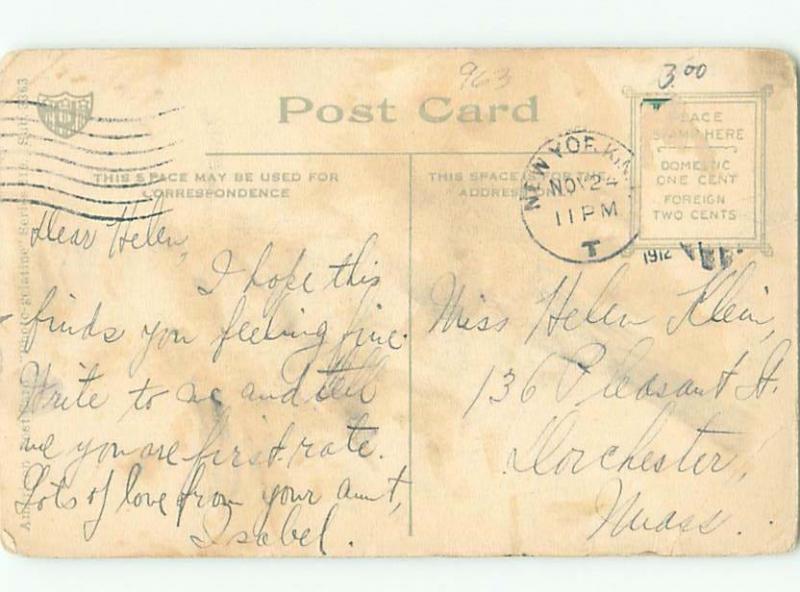 963
3.00
Post Card
PLACE
STAMP HERE
DOMESTIC
ONE CENT
FOREIGN
TWO CENTS
THIS SPACE MAY BE USED FOR
CORRESPONDENCE
THIS SPACE IS FOR THE
ADDRESS ONLY
NEW YORK, N.Y.
NOV 24
11 PM
T
1912
Dear Helen,
I hope this
finds you feeling fine.
Write to me and tell
me you are first rate.
Lots of love from your aunt,
Isabel.
Miss Helen Klein,
136 Pleasant St.
Dorchester,
Mass.
"Photo-gelatine" Series